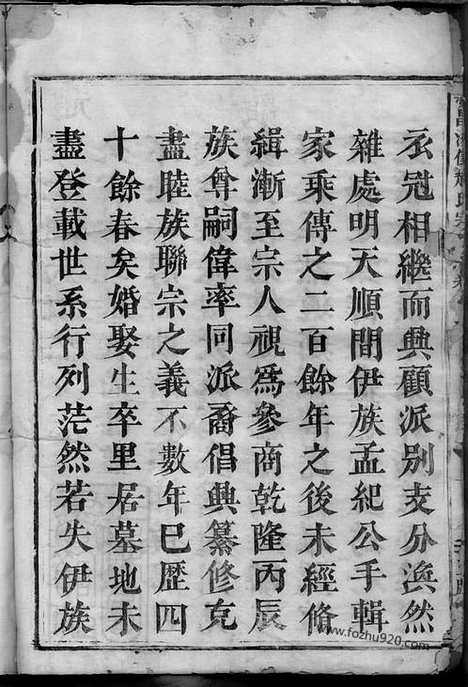 衣冠相繼而興顧派別支分渙然
雜處明天順間伊族孟紀公手輯
家乘傳之二百餘年之後未經脩
緝漸至宗人視爲參商乾隆丙辰
族尊嗣偉率同派裔倡興纂修克
盡睦族聯宗之義不數年已歷四
十餘春矣婚娶生卒里居墓地未
盡登載世系行列茫然若失伊族
www.fozhu920.com